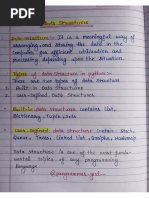 Data Structures
Data Structure :- It is a meaningful way of
arranging and storing the data in the
computer for efficient utilization and
processing depending upon the situation.
Types of data structure in python :-
There are two types of data structure
1. Built-in Data Structures
2. User-defined Data Structures
Built-in data Structures contains List,
Dictionary, Tuple, Sets
User-Defined data Structures contain :- Stack,
Queue, Trees, Linked List, Graphs, Hashmap
Data Structure is one of the most funda-
mental topics of any programming
language.